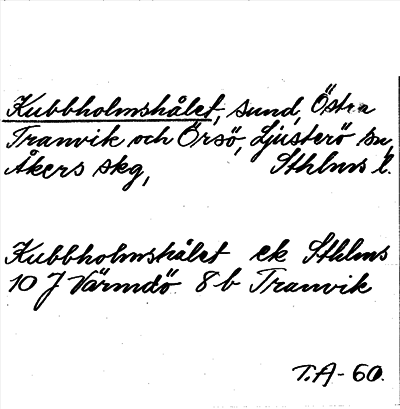 Kubbholmshålet, sund, Östra
Tranvik och Örsö, Ljusterö sn,
Åkers skg, Sthlms l.
Kubbholmshålet ek Sthlms
10 J Värmdö 8b Tranvik
T.A-60.